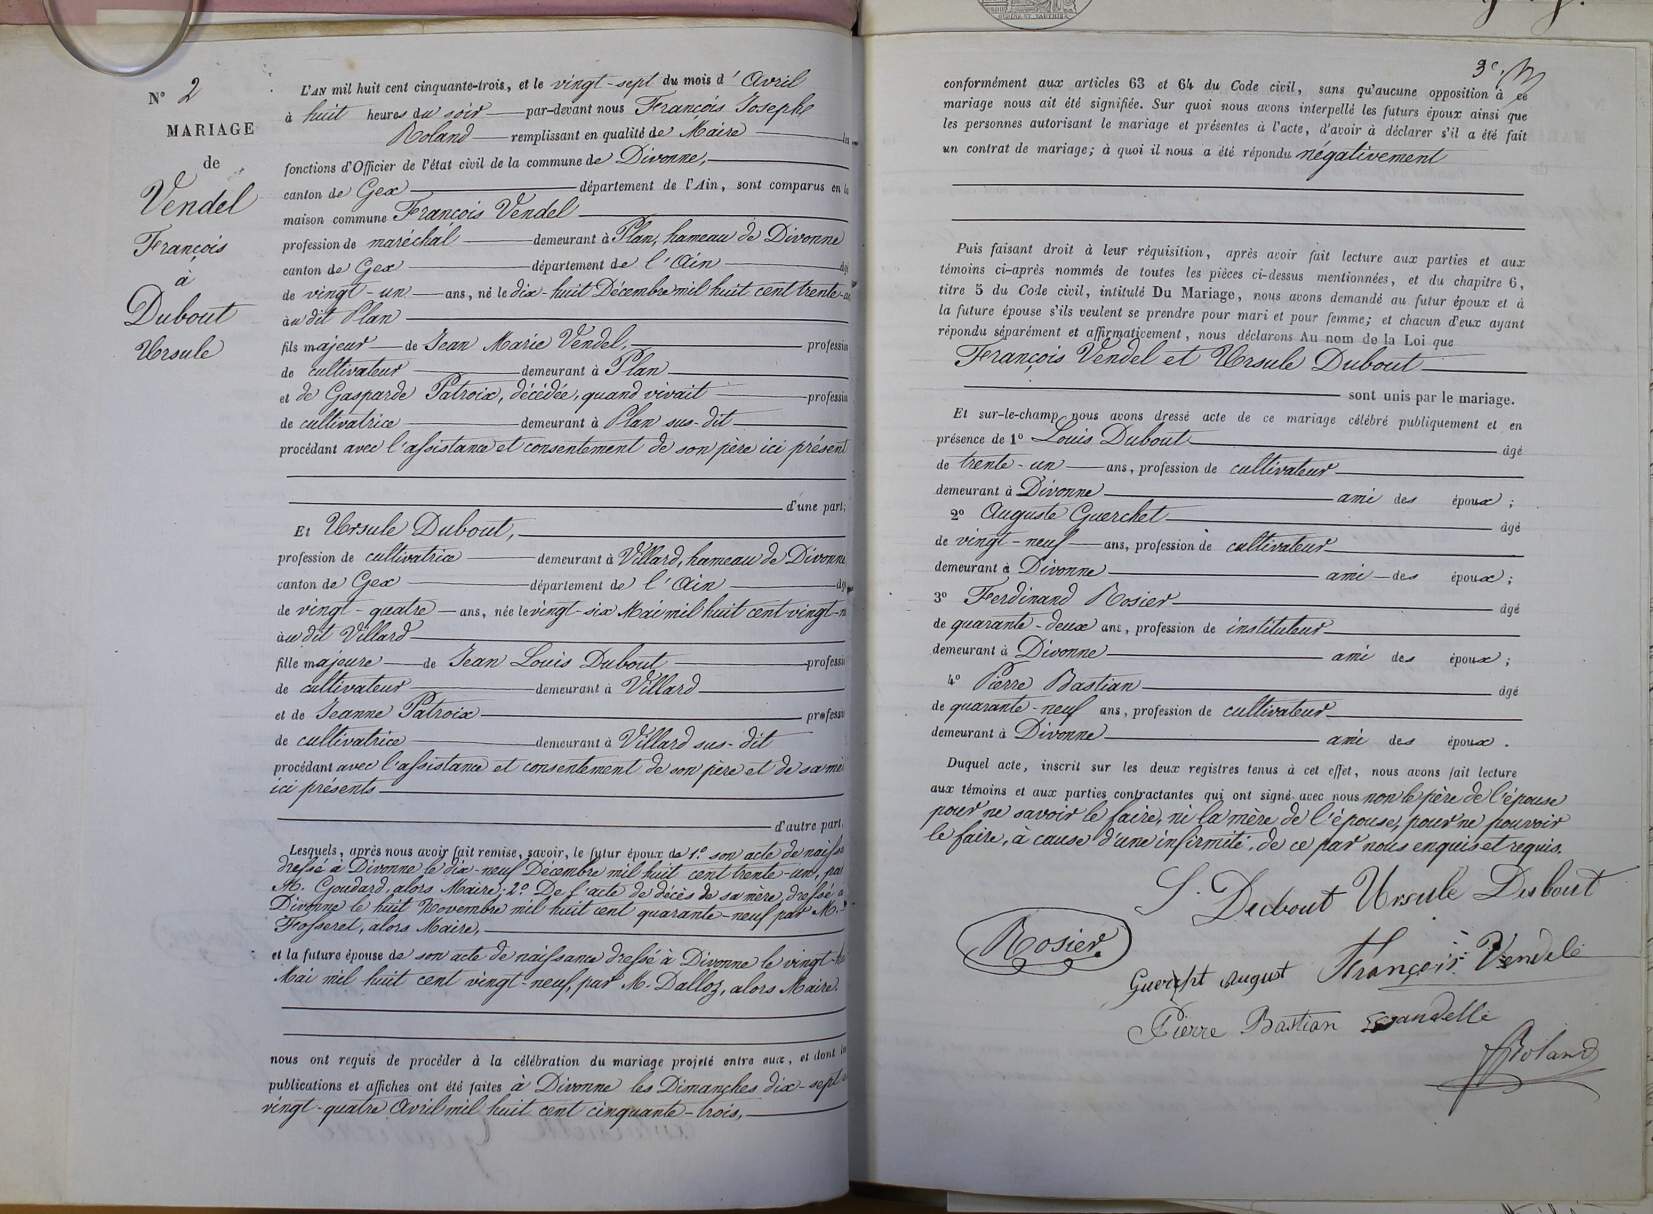 N° 2
MARIAGE
de
Vendel
François
à
Dubout
Ursule
L'AN mil huit cent cinquante-trois, et le vingt-sept du mois d'Avril
à huit heures du soir par-devant nous François Joseph
Roland remplissant en qualité de Maire les
fonctions d'Officier de l'état civil de la commune de Divonne,
canton de Gex département de l'Ain, sont comparus en la
maison commune François Vendel
profession de maréchal demeurant à Plan, hameau de Divonne
canton de Gex département de l'Ain âgé
de vingt-un ans, né le dix-huit Décembre mil huit cent trente-un
àu dit Plan
fils majeur de Jean Marie Vendel, profession
de cultivateur demeurant à Plan
et de Gasparde Patroix, décédée, quand vivait profession
de cultivatrice demeurant à Plan sus-dit
procédant avec l'assistance et consentement de son père ici présent
d'une part;
Et Ursule Dubout,
profession de cultivatrice demeurant à Villard, hameau de Divonne
canton de Gex département de l'Ain âgé
de vingt-quatre ans, née le vingt-six Mai mil huit cent vingt-n
àu dit Villard
fille majeure de Jean Louis Dubout profession
de cultivateur demeurant à Villard
et de Jeanne Patroix profession
de cultivatrice demeurant à Villard sus-dit
procédant avec l'assistance et consentement de son père et de sa mère
ici présents
d'autre part.
Lesquels, après nous avoir fait remise, savoir, le futur époux de 1° son acte de naissa
dressé à Divonne le dix-neuf Décembre mil huit cent trente-un, par
M. Goudard, alors Maire; 2° De l'acte de décès de sa mère, dressé à
Divonne le huit Novembre mil huit cent quarante-neuf par M.
Fosseret, alors Maire,
et la future épouse de son acte de naissance dressé à Divonne le vingt-
Mai mil huit cent vingt-neuf, par M. Dalloz, alors Maire.
nous ont requis de procéder à la célébration du mariage projeté entre eux, et dont les
publications et affiches ont été faites à Divonne les Dimanches dix-sept et
vingt-quatre Avril mil huit cent cinquante-trois,
3e.
conformément aux articles 63 et 64 du Code civil, sans qu'aucune opposition à ce
mariage nous ait été signifiée. Sur quoi nous avons interpellé les futurs époux ainsi que
les personnes autorisant le mariage et présentes à l'acte, d'avoir à déclarer s'il a été fait
un contrat de mariage; à quoi il nous a été répondu négativement
Puis faisant droit à leur réquisition, après avoir fait lecture aux parties et aux
témoins ci-après nommés de toutes les pièces ci-dessus mentionnées, et du chapitre 6,
titre 5 du Code civil, intitulé Du Mariage, nous avons demandé au futur époux et à
la future épouse s'ils veulent se prendre pour mari et pour femme; et chacun d'eux ayant
répondu séparément et affirmativement, nous déclarons Au nom de la Loi que
François Vendel et Ursule Dubout
sont unis par le mariage.
Et sur-le-champ nous avons dressé acte de ce mariage célébré publiquement et en
présence de 1° Louis Dubout âgé
de trente-un ans, profession de cultivateur
demeurant à Divonne ami des époux;
2° Auguste Guerchet âgé
de vingt-neuf ans, profession de cultivateur
demeurant à Divonne ami des époux;
3° Ferdinand Rosier âgé
de quarante-deux ans, profession de instituteur
demeurant à Divonne ami des époux;
4° Pierre Bastian âgé
de quarante-neuf ans, profession de cultivateur
demeurant à Divonne ami des époux.
Duquel acte, inscrit sur les deux registres tenus à cet effet, nous avons fait lecture
aux témoins et aux parties contractantes qui ont signé avec nous non le père de l'épouse
pour ne savoir le faire, ni la mère de l'épouse, pour ne pouvoir
le faire, à cause d'une infirmité, de ce par nous enquis et requis.
L. Dubout Ursule Desbout
Rosier
François Vendele
August
Pierre Bastian
Roland